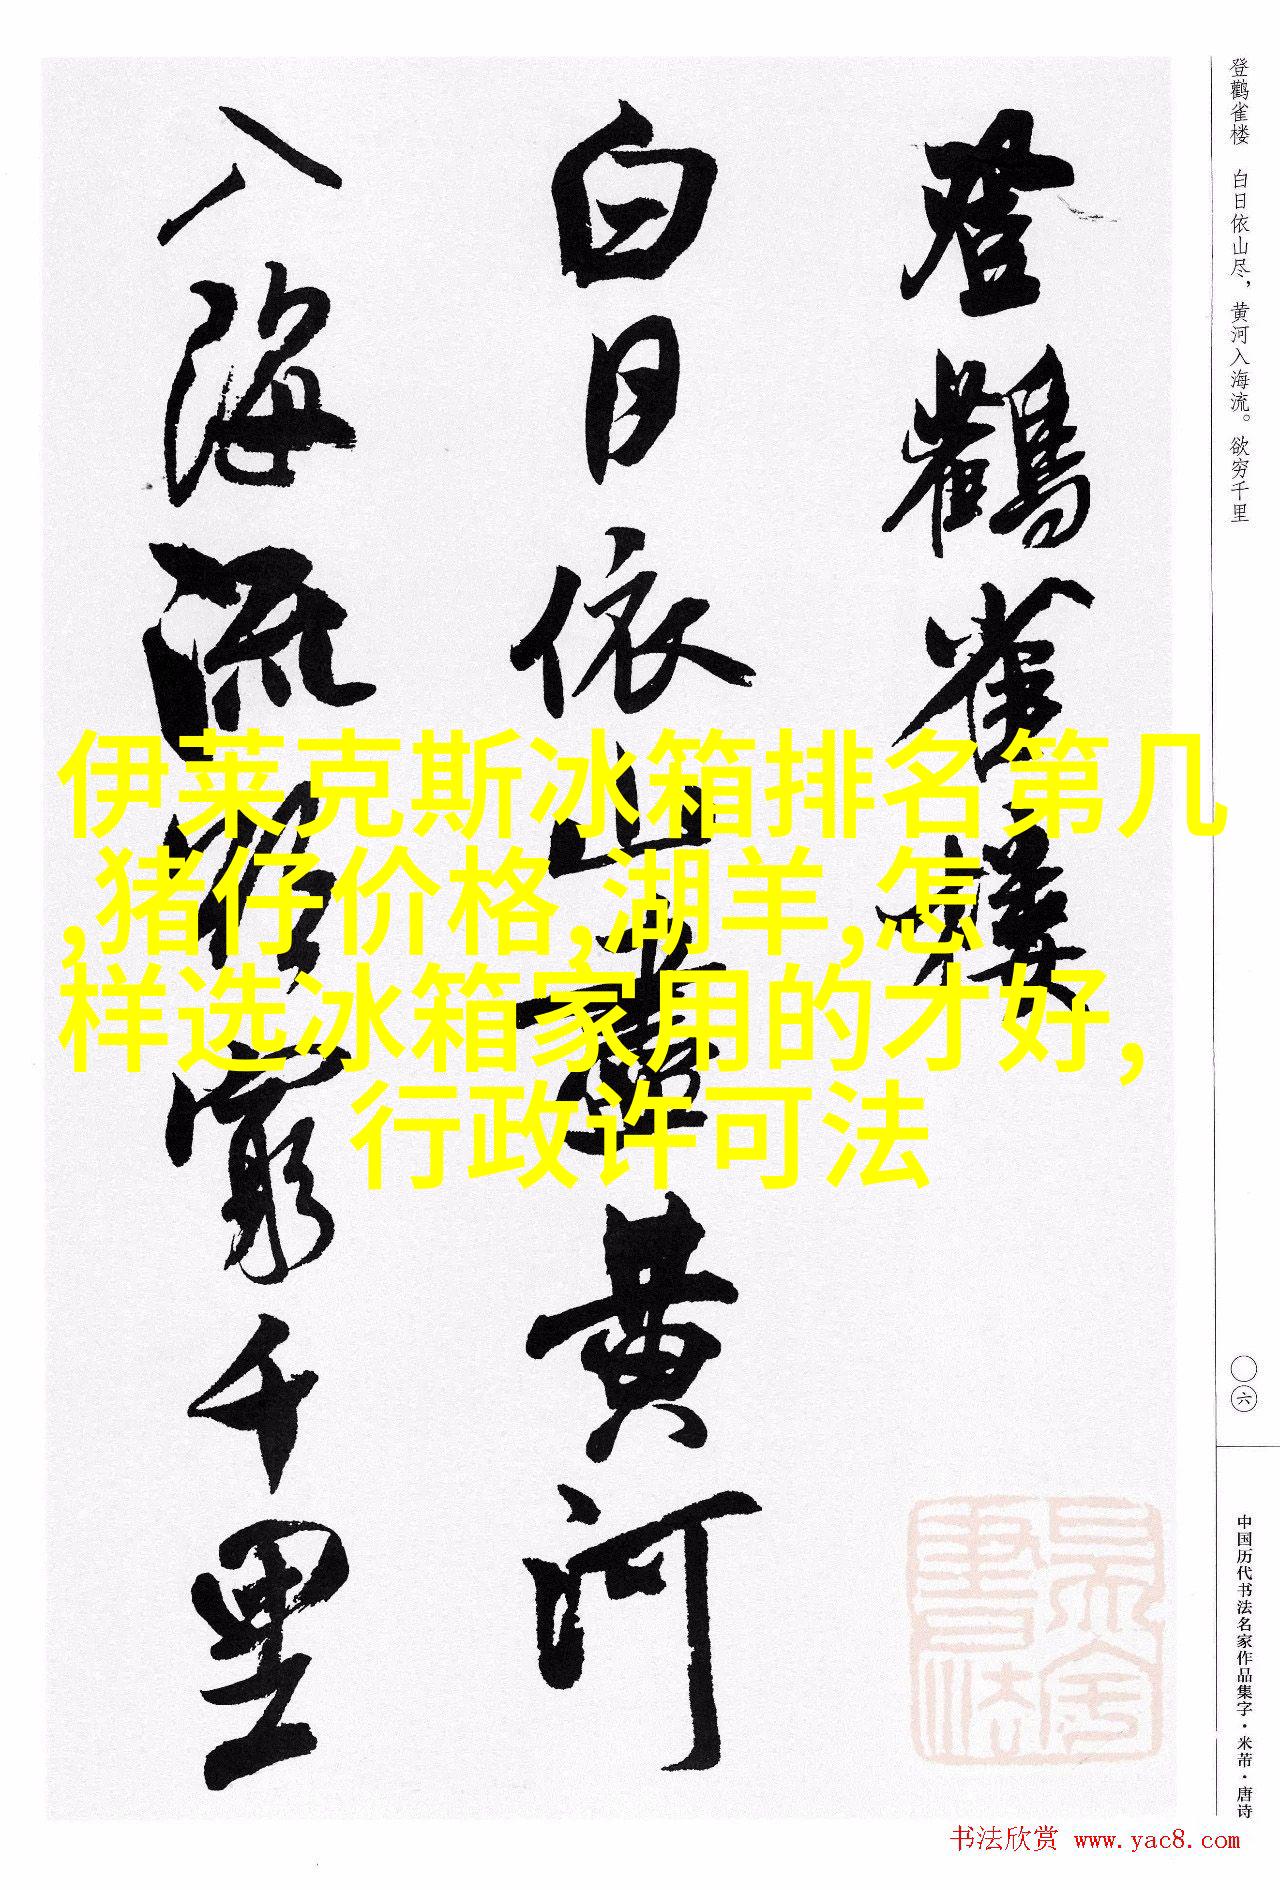 登鹳雀楼 白日依山尽，黄河入海流。欲穷千里
登鸛雀樓
白日依山盡黄河
入海流欲窮千里
伊莱克斯冰箱排名第几
,猪仔价格,湖羊,怎
样选冰箱家用的才好,
行政许可法
〇六
中国历代书法名家作品集字·米芾·唐诗
书法欣赏 www.yac8.com